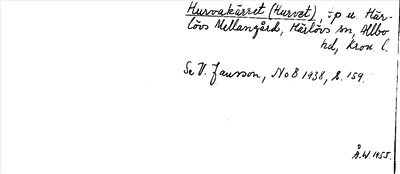 Hurvakärret (Hurvet), :p u. Här-
lövs Mellangård, Härlövs sn, Allbo
hd, Kron. l.
Se V. Jansson, NoB 1938, s. 159.
Å.W. 1955.